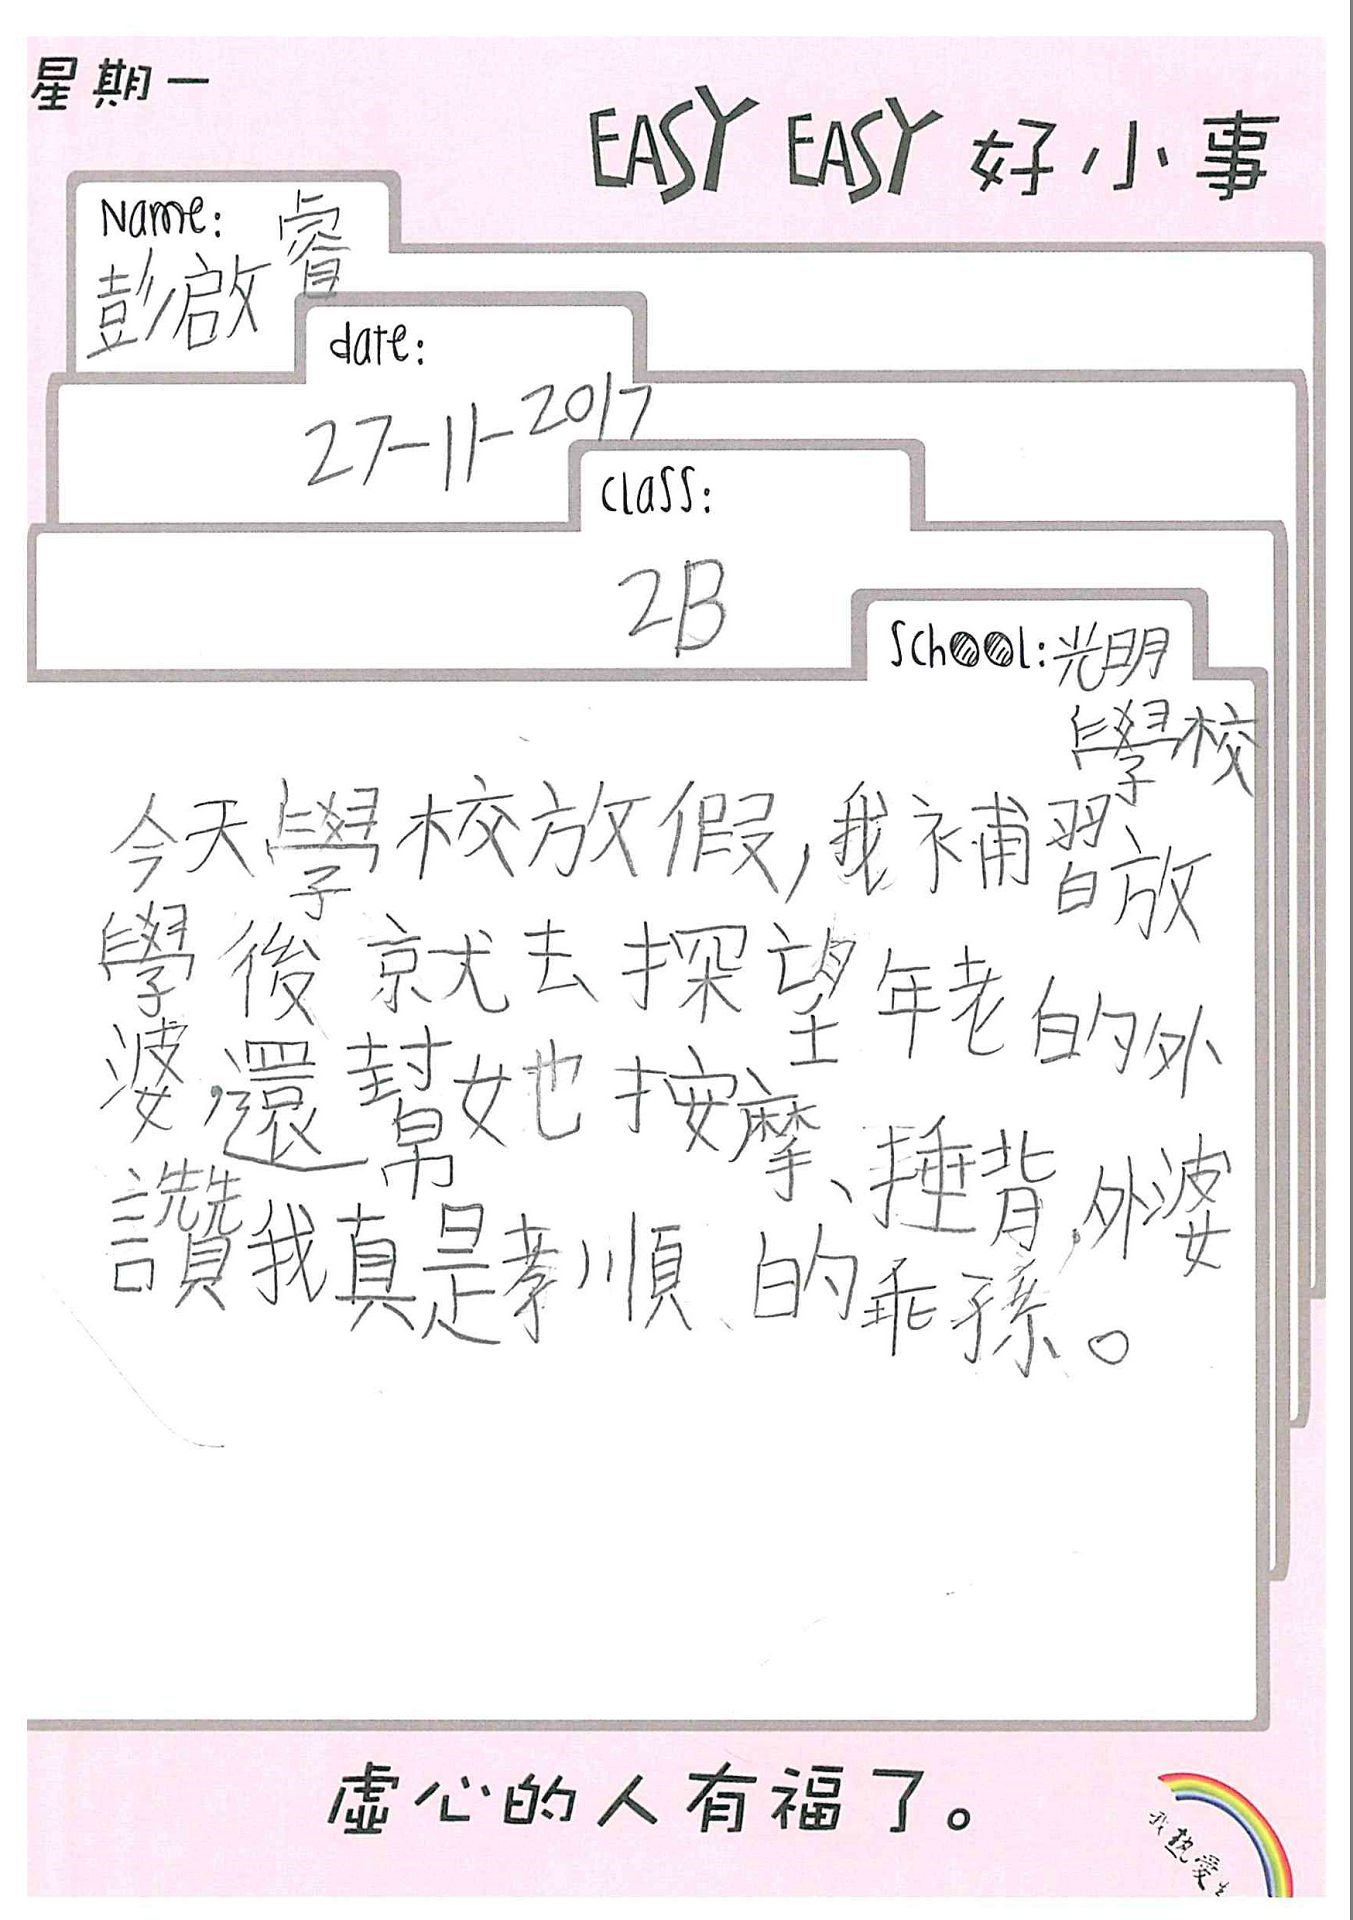 星期一
EASY EASY 好小事
Name:
彭啟睿
date:
27-11-2017
class:
2B
School:光明
學校
今天學校放假,我補習放
學後就去探望年老的外
婆,還幫她按摩、捶背,外婆
讚我真是孝順的乖孫。
虛心的人有福了。
我熱愛生